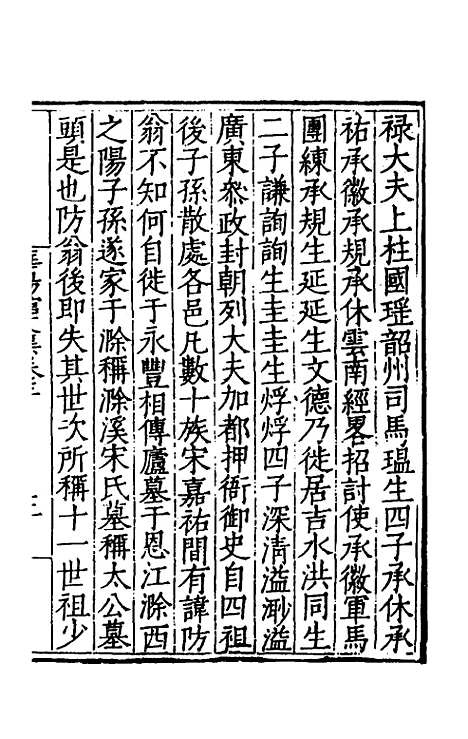 祿大夫上柱國瑶韶州司馬瑥生四子承休承
祐承徽承規承休雲南經畧招討使承徽軍馬
團練承規生延延生文德乃徙居吉水洪同生
二子謙詢詢生圭圭生烰烰四子深清溢渺溢
廣東叅政封朝列大夫加都押衙御史自四祖
後子孫散處各邑凡數十族宋嘉祐間有諱防
翁不知何自徙于永豐相傳廬墓于恩江滁西
之陽子孫遂家于滁稱滁溪宋氏墓稱太公墓
頭是也防翁後即失其世次所稱十一世祖少